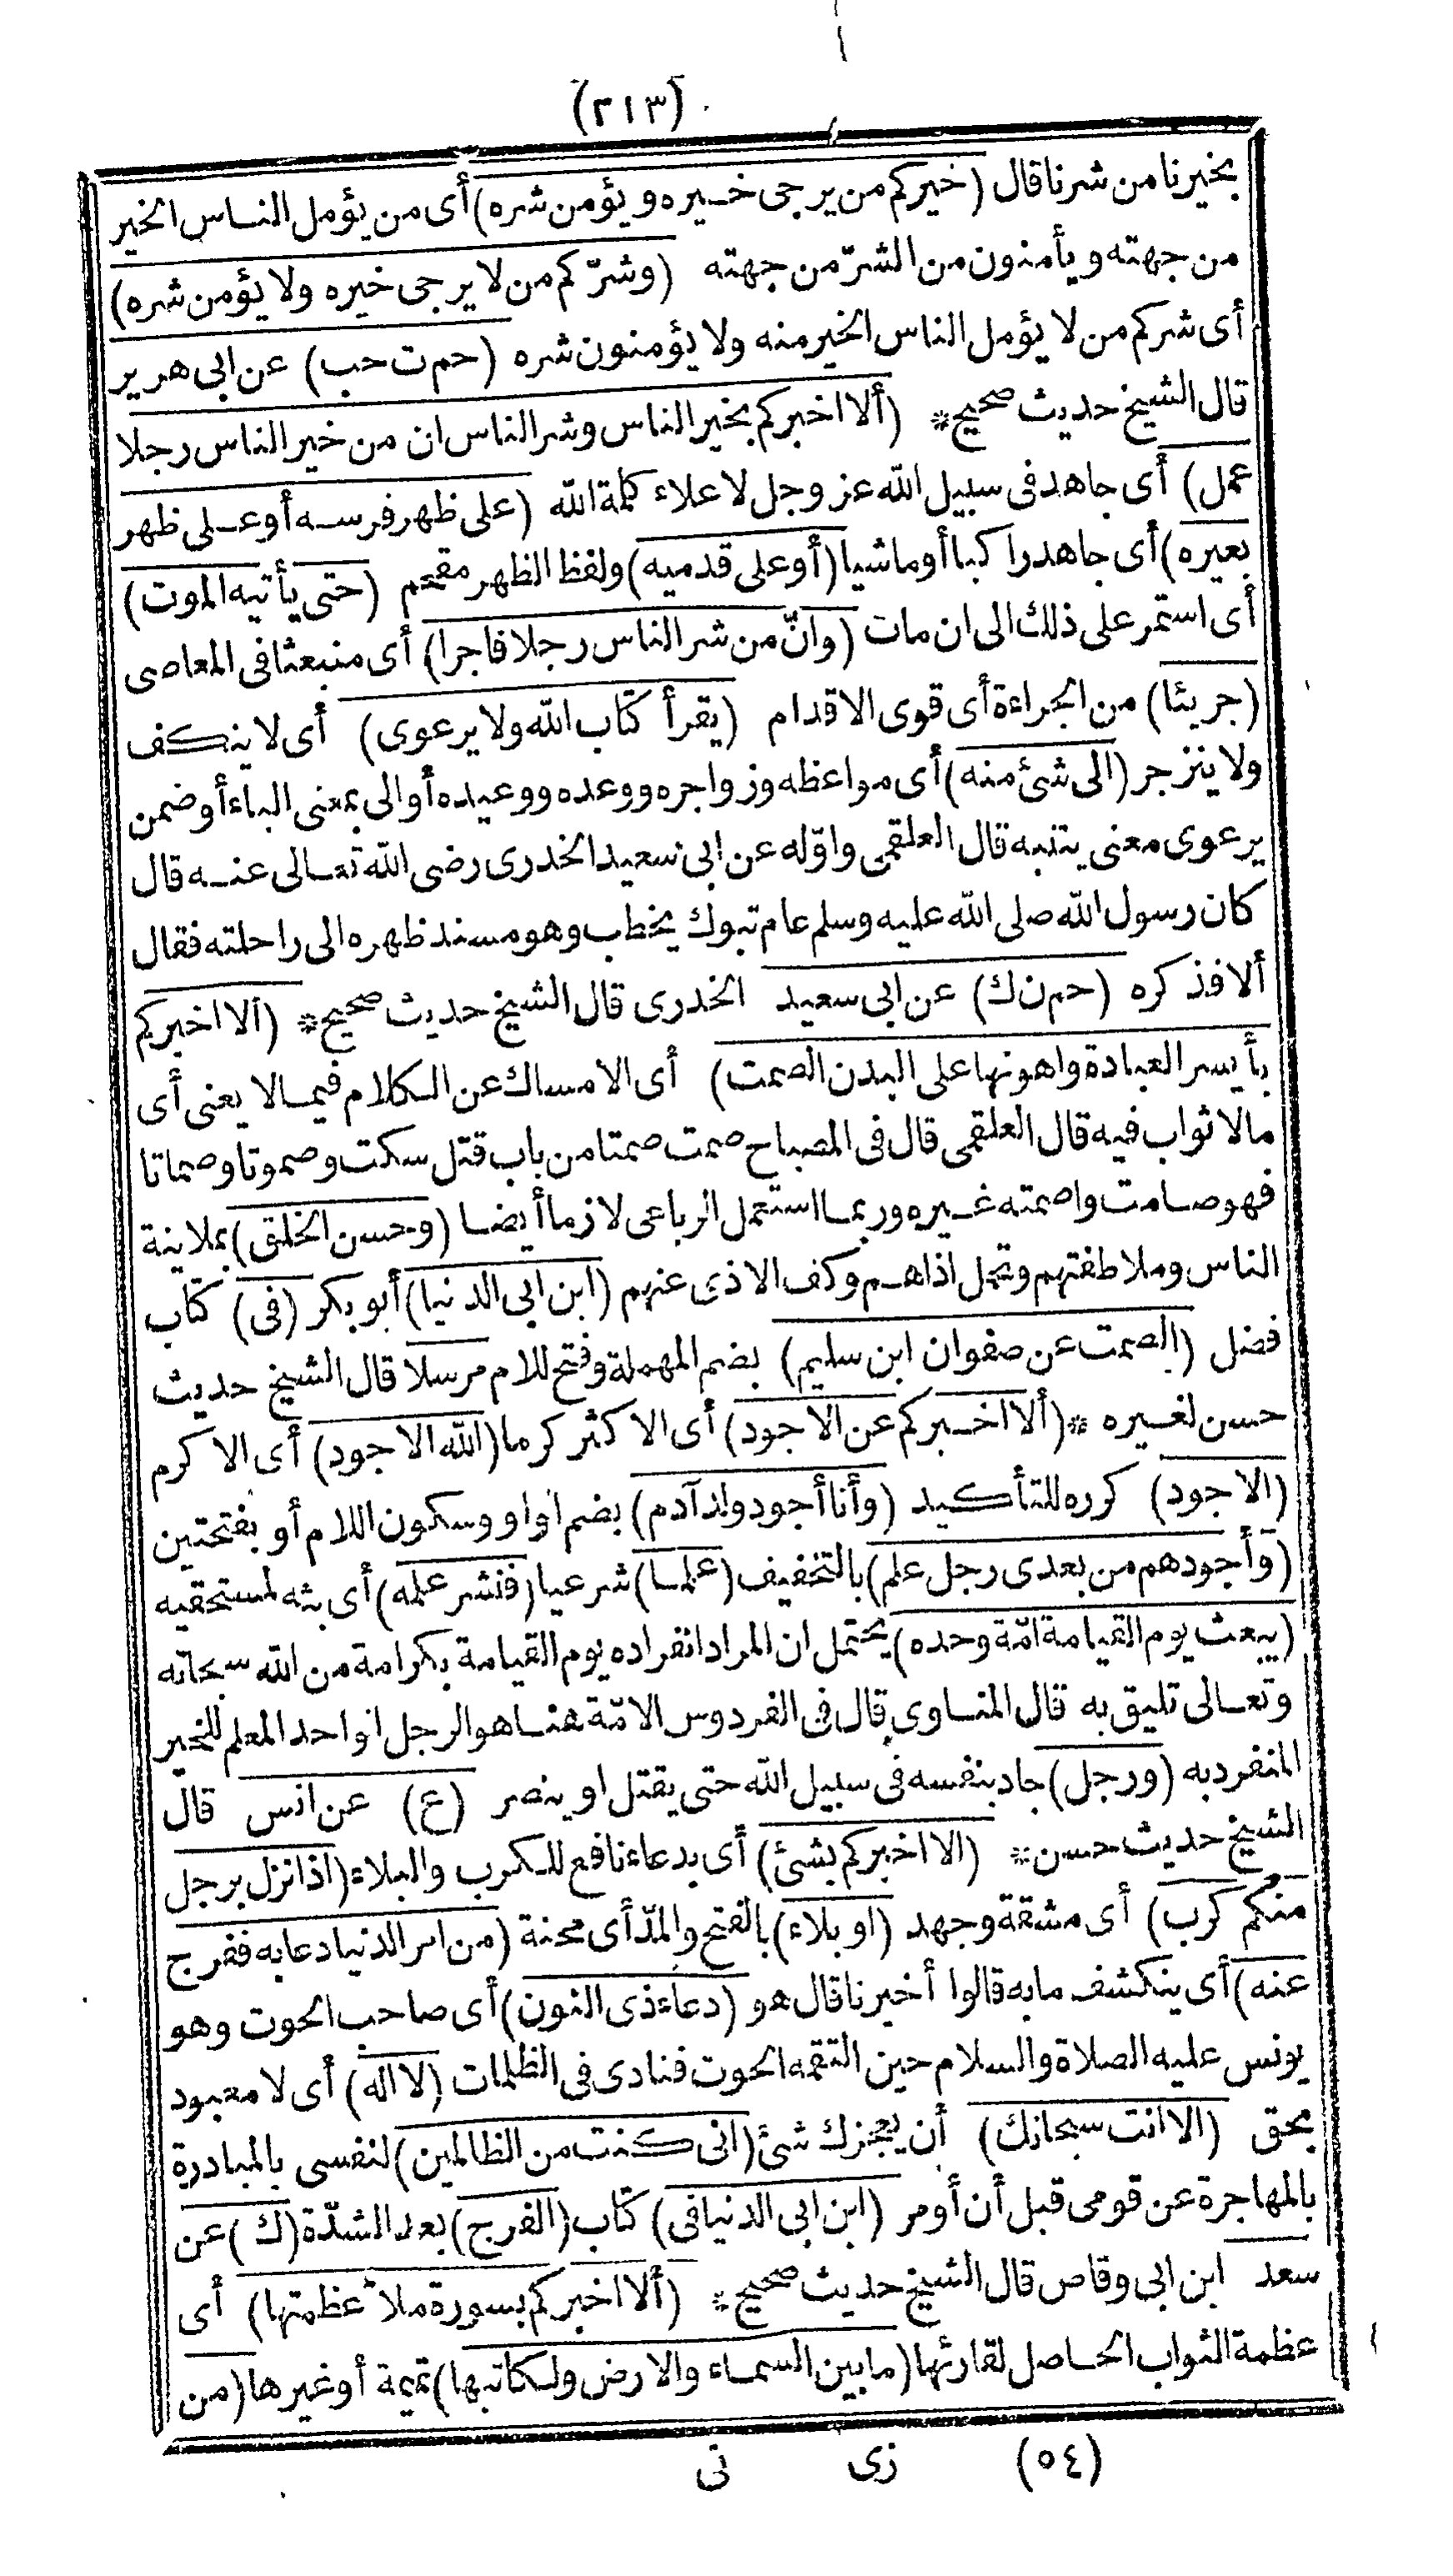 (٢١٣)
بخيرنا من شرنا قال (خيركم من يرجى خيره ويؤمن شره) أى من يؤمل الناس الخير
من جهته ويأمنون من الشرّ من جهته (وشرّكم من لا يرجى خيره ولا يؤمن شره)
أى شركم من لا يؤمل الناس الخير منه ولا يؤمنون شره (حم ت حب) عن ابى هرير
قال الشيخ حديث صحيح * (ألا اخبركم بخير الناس وشر الناس ان من خير الناس رجلا
عمل) أى جاهد فى سبيل الله عز وجل لاعلاء كلمة الله (على ظهر فرسه أو على ظهر
بعيره) أى جاهد را كبا أو ماشيا (أو على قدميه) ولفظ الظهر مقحم (حتى يأتيه الموت)
أى استمر على ذلك الى ان مات (وانّ من شر الناس رجلا فاجرا) أى منبعثا فى المعاصى
(جريئا) من الجراءة أى قوى الاقدام (يقرأ كتاب الله ولا يرعوى) أى لا ينكف
ولا ينزجر (الى شئ منه) أى مواعظه وزواجره ووعده ووعيده أو الى بمعنى الباء أو ضمن
يرعوى معنى يتنبه قال العلقمى واوّله عن ابى سعيد الخدرى رضى الله تعالى عنه قال
كان رسول الله صلى الله عليه وسلم عام تبوك يخطب وهو مسند ظهره الى راحلته فقال
ألا فذكره (حم ن ك) عن ابى سعيد الخدرى قال الشيخ حديث صحيح * (ألا اخبركم
بأيسر العبادة واهونها على البدن الصمت) أى الامساك عن الكلام فيما لا يعنى أى
مالا ثواب فيه قال العلقمى قال فى المصباح صمت صمتا من باب قتل سكت وصموتا وصماتا
فهو صامت واصمته غيره وربما استعمل الرباعى لازما أيضا (وحسن الخلق) بملاينة
الناس وملاطفتهم وتحمل اذاهم وكف الاذى عنهم (ابن ابى الدنيا) أبو بكر (فى) كتاب
فضل (الصمت عن صفوان ابن سليم) بضم المهملة وفتح للام مرسلا قال الشيخ حديث
حسن لغيره * (ألا اخبركم عن الاجود) أى الاكثر كرما (الله الاجود) أى الاكرم
(الاجود) كرره للتأكيد (وأنا أجود ولد آدم) بضم اواو وسكون اللام أو بفتحتين
(وأجودهم من بعدى رجل علم) بالتخفيف (علما) شرعيا (فنشر علمه) أى بثه لمستحقيه
(يبعث يوم القيامة امّة وحده) يحتمل ان المراد انفراده يوم القيامة بكرامة من الله سبحانه
وتعالى تليق به قال المناوى قال فى الفردوس الامّة هنا هو الرجل انواحد المعلم للخير
المنفرد به (ورجل) جاد بنفسه فى سبيل الله حتى يقتل او ينصر (ع) عن انس قال
الشيخ حديث حسن * (الا اخبركم بشئ) أى بدعاء نافع للكرب والبلاء (اذا نزل برجل
منكم كرب) أى مشقة وجهد (او بلاء) بالفتح والمدّ أى محنة (من امر الدنيا دعا به ففرج
عنه) أى ينكشف ما به قالوا أخبرنا قال هو (دعاء ذى النون) أى صاحب الحوت وهو
يونس عليه الصلاة والسلام حين التقمه الحوت فنادى فى الظلمات (لا اله) أى لا معبود
بحق (الا انت سبحانك) أن يعجزك شئ (انى كنت من الظالمين) لنفسى بالمبادرة
بالمهاجرة عن قومى قبل أن أومر (ابن ابى الدنيا فى) كتاب (الفرج) بعد الشدّة (ك) عن
سعد ابن ابى وقاص قال الشيخ حديث صحيح * (ألا اخبركم بسورة ملأ عظمتها) أى
عظمة الثواب الحاصل لقارئها (ما بين السماء والارض ولكاتبها) تميمة أو غيرها (من
(٥٤) زى نى